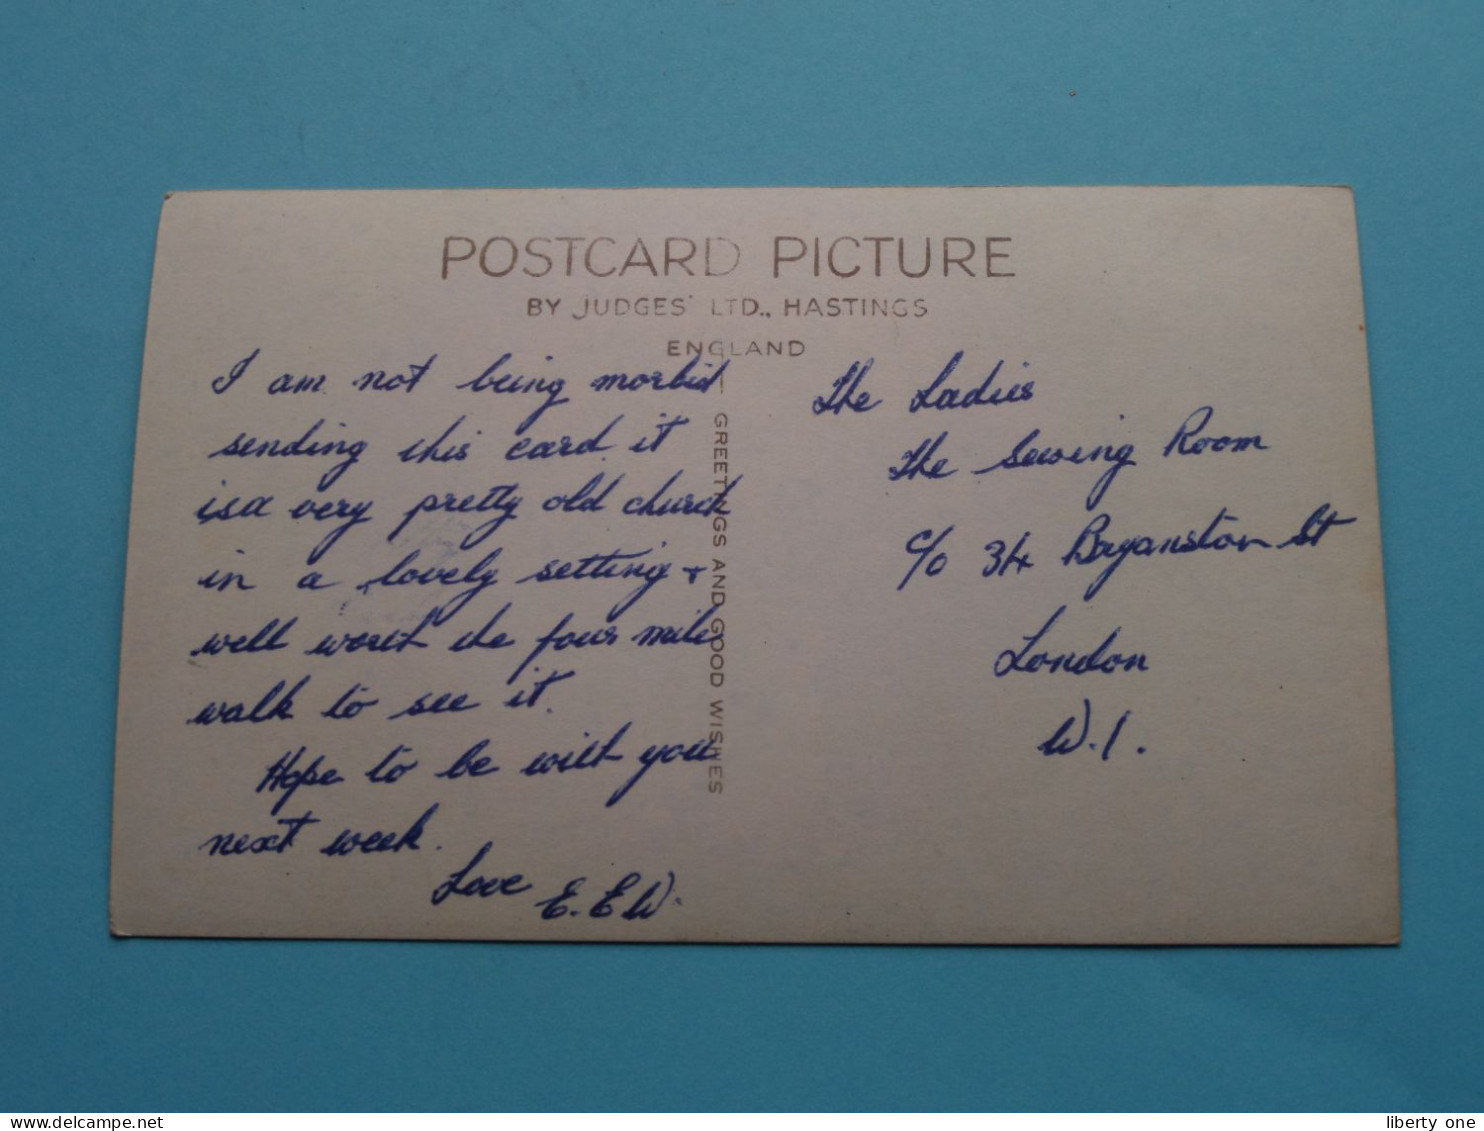 POSTCARD PICTURE
BY JUDGES' LTD., HASTINGS
ENGLAND
I am not being morbid
sending this card. it
is a very pretty old church
in a lovely setting +
well worth the four mile
walk to see it.
Hope to be with you
next week.
Love E. E W.
GREETINGS AND GOOD WISHES
The Ladies
The Sewing Room
c/o 34 Bryanston St
London
W.1.
delcampe.net
liberty one